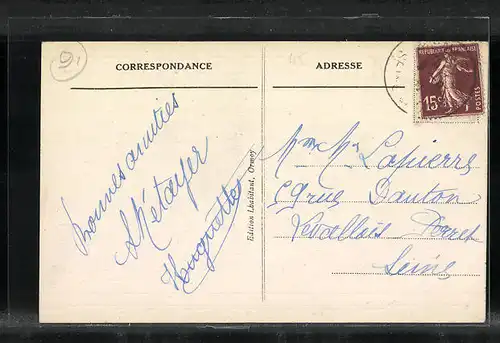 91
CORRESPONDANCE
ADRESSE
REPUBLIQUE FRANÇAISE
15c
POSTES
Bonnes amitiés
Métayer
Huguette
Edition Lhabitant, Ormoy
Mme Lapierre
rue Danton
Levallois Perret
Seine